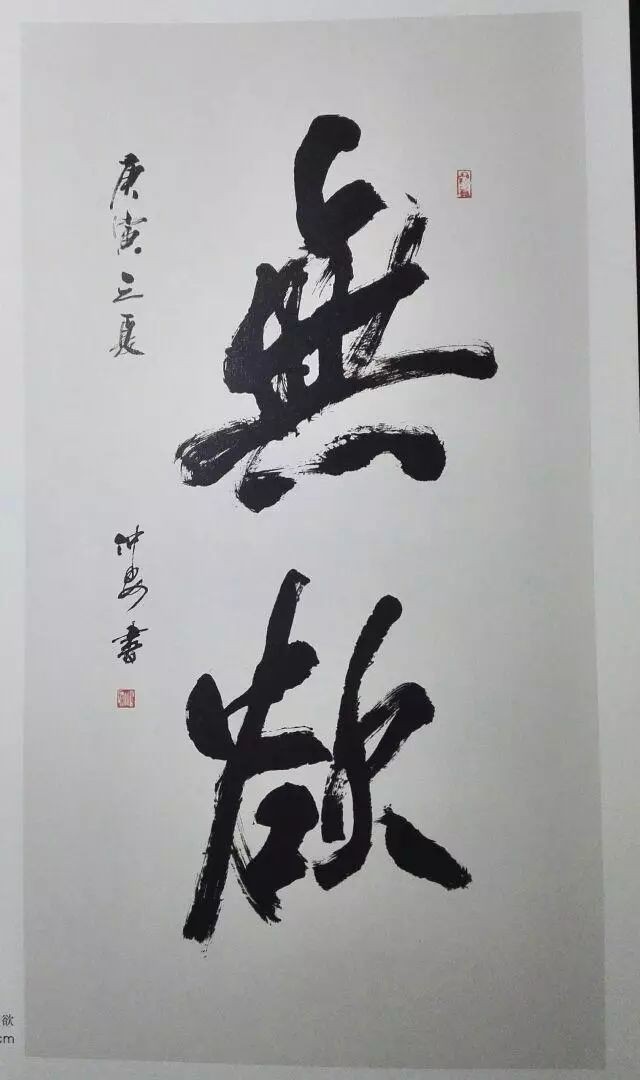 無欲
庚寅之夏
仲安書
欲
cm